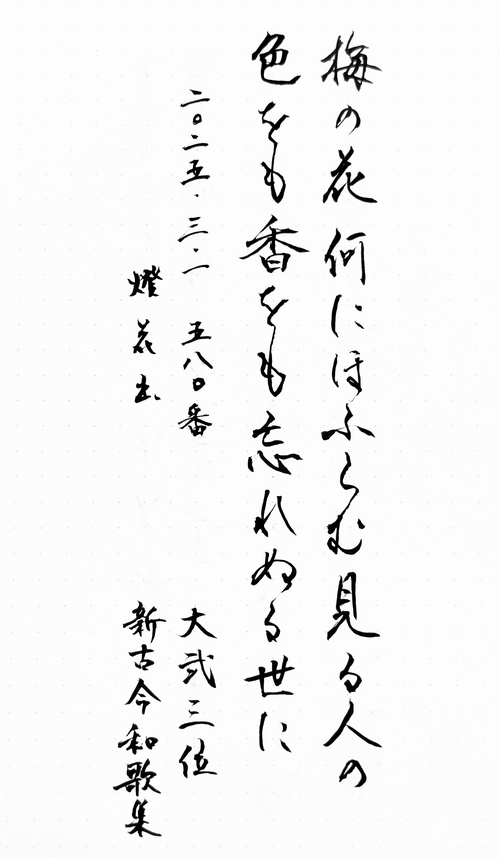 梅の花何にほふらむ見る人の
色をも香をも忘れぬる世に
二〇二五.三.一 五八〇番
大弐三位
燈花出
新古今和歌集